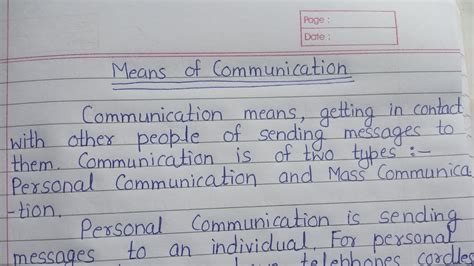 Page :
Date :
Means of Communication
Communication means, getting in contact
with other people of sending messages to
them. Communication is of two types :-
Personal Communication and Mass Communica
-tion.
Personal Communication is sending
messages to an individual. For personal
telephones cordles